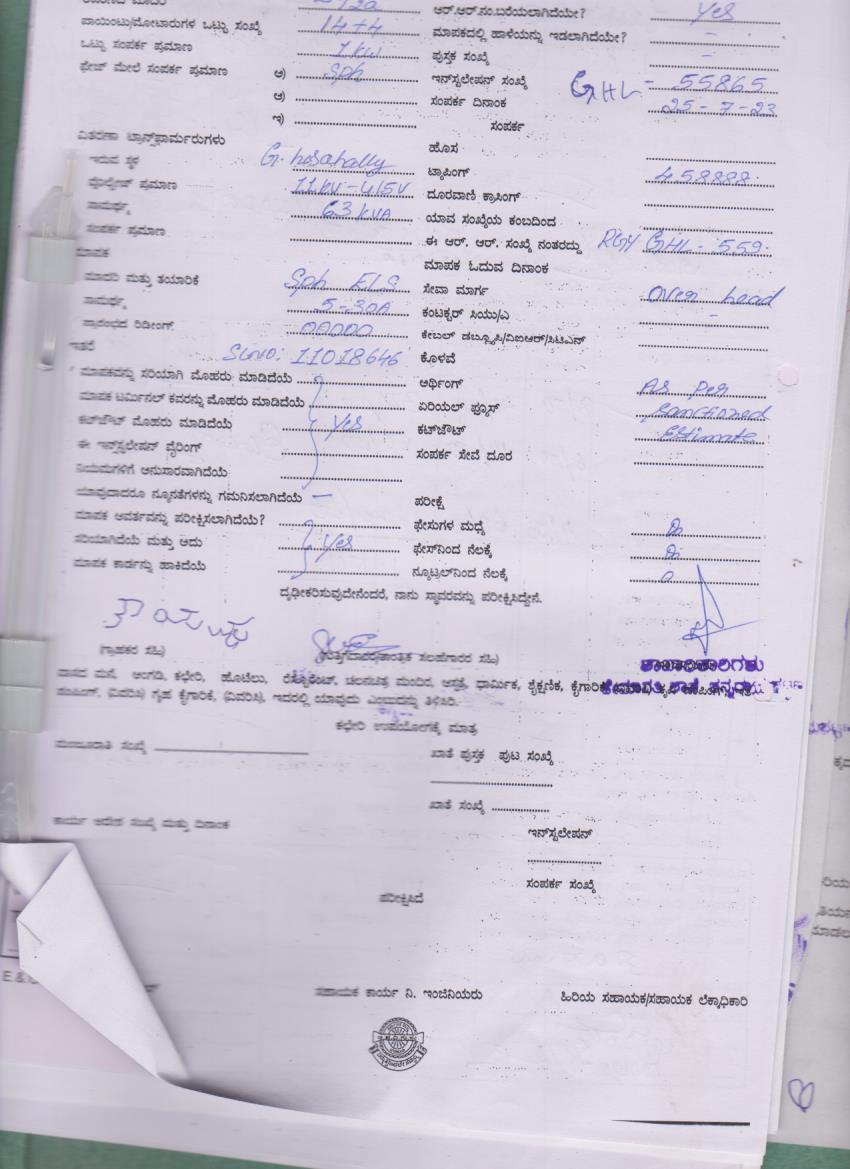 ಪಾಯಿಂಟು/ಮೋಟಾರುಗಳ ಒಟ್ಟು ಸಂಖ್ಯೆ 14+4
ಒಟ್ಟು ಸಂಪರ್ಕ ಪ್ರಮಾಣ 1 kw
ಫೇಜ್ ಮೇಲೆ ಸಂಪರ್ಕ ಪ್ರಮಾಣ ಅ) Sph
ಆ)
ಇ)
ವಿತರಣಾ ಟ್ರಾನ್ಸ್‌ಫಾರ್ಮರುಗಳು
ಇರುವ ಸ್ಥಳ G. hosahally
ವೋಲ್ಟೇಜ್ ಪ್ರಮಾಣ 11kv-415V
ಸಾಮರ್ಥ್ಯ 63 KVA
ಸಂಪರ್ಕ ಪ್ರಮಾಣ
ಮಾಪಕ
ಮಾದರಿ ಮತ್ತು ತಯಾರಿಕೆ Sph
ಸಾಮರ್ಥ್ಯ 5-30A
ಪ್ರಾರಂಭದ ರಿಡಿಂಗ್ 00000
ಇತರೆ Sl.no: 11018646
ಮಾಪಕವನ್ನು ಸರಿಯಾಗಿ ಮೊಹರು ಮಾಡಿದೆಯೆ
ಮಾಪಕ ಟರ್ಮಿನಲ್ ಕವರನ್ನು ಮೊಹರು ಮಾಡಿದೆಯೆ
ಕಟ್‌ಔಟ್ ಮೊಹರು ಮಾಡಿದೆಯೆ Yes
ಈ ಇನ್‌ಸ್ಟಲೇಷನ್ ವೈರಿಂಗ್
ನಿಯಮಗಳಿಗೆ ಅನುಸಾರವಾಗಿದೆಯೆ
ಯಾವುದಾದರೂ ನ್ಯೂನತೆಗಳನ್ನು ಗಮನಿಸಲಾಗಿದೆಯೆ —
ಮಾಪಕ ಆವರ್ತವನ್ನು ಪರೀಕ್ಷಿಸಲಾಗಿದೆಯೆ?
ಸರಿಯಾಗಿದೆಯೆ ಮತ್ತು ಅದು Yes
ಮಾಪಕ ಕಾರ್ಡನ್ನು ಹಾಕಿದೆಯೆ
ಆರ್.ಆರ್.ನಂ.ಬರೆಯಲಾಗಿದೆಯೇ? Yes
ಮಾಪಕದಲ್ಲಿ ಹಾಳೆಯನ್ನು ಇಡಲಾಗಿದೆಯೇ? -
ಪುಸ್ತಕ ಸಂಖ್ಯೆ -
ಇನ್‌ಸ್ಟಲೇಷನ್ ಸಂಖ್ಯೆ GHL - 55865
ಸಂಪರ್ಕ ದಿನಾಂಕ 25-7-23
ಸಂಪರ್ಕ
ಹೊಸ
ಟ್ಯಾಪಿಂಗ್ 458888
ದೂರವಾಣಿ ಕ್ರಾಸಿಂಗ್
ಯಾವ ಸಂಖ್ಯೆಯ ಕಂಬದಿಂದ
ಈ ಆರ್. ಆರ್. ಸಂಖ್ಯೆ ನಂತರದ್ದು GHL - 559
ಮಾಪಕ ಓದುವ ದಿನಾಂಕ
ಸೇವಾ ಮಾರ್ಗ Over head
ಕಂಟಕ್ಟರ್ ಸಿಯು/ಎ -
ಕೇಬಲ್ ಡಬ್ಲ್ಯೂಪಿ/ವಿಐಆರ್/ಸಿಟಿಎಸ್
ಕೊಳವೆ
ಆರ್ಥಿಂಗ್ As per
ಏರಿಯಲ್ ಫ್ಯೂಸ್ sanctioned
ಕಟ್‌ಔಟ್ Estimate
ಸಂಪರ್ಕ ಸೇವೆ ದೂರ
ಪರೀಕ್ಷೆ
ಫೇಸುಗಳ ಮಧ್ಯೆ
ಫೇಸ್‌ನಿಂದ ನೆಲಕ್ಕೆ
ನ್ಯೂಟ್ರಲ್‌ನಿಂದ ನೆಲಕ್ಕೆ
ದೃಢೀಕರಿಸುವುದೇನೆಂದರೆ, ನಾನು ಸ್ಥಾವರವನ್ನು ಪರೀಕ್ಷಿಸಿದ್ದೇನೆ.
(ಗ್ರಾಹಕರ ಸಹಿ)
(ಗುತ್ತಿಗೆದಾರರ/ತಾಂತ್ರಿಕ ಸಲಹೆಗಾರರ ಸಹಿ)
ಶಾಖಾಧಿಕಾರಿಗಳು
ವಾಸದ ಮನೆ, ಅಂಗಡಿ, ಕಛೇರಿ, ಹೊಟೆಲು, ರೆಸ್ಟೋರೆಂಟ್, ಚಲನಚಿತ್ರ ಮಂದಿರ, ಆಸ್ಪತ್ರೆ, ಧಾರ್ಮಿಕ, ಶೈಕ್ಷಣಿಕ, ಕೈಗಾರಿಕೆ
ಪಂಪಿಂಗ್, (ವಿವರಿಸಿ) ಗೃಹ ಕೈಗಾರಿಕೆ, (ವಿವರಿಸಿ), ಇದರಲ್ಲಿ ಯಾವುದು ಎಂಬುದನ್ನು ತಿಳಿಸಿರಿ.
ಕಛೇರಿ ಉಪಯೋಗಕ್ಕೆ ಮಾತ್ರ
ಮಂಜೂರಾತಿ ಸಂಖ್ಯೆ
ಖಾತೆ ಪುಸ್ತಕ ಪುಟ ಸಂಖ್ಯೆ
ಖಾತೆ ಸಂಖ್ಯೆ
ಕಾರ್ಯ ಆದೇಶ ಸಂಖ್ಯೆ ಮತ್ತು ದಿನಾಂಕ
ಇನ್‌ಸ್ಟಲೇಷನ್
ಸಂಪರ್ಕ ಸಂಖ್ಯೆ
ಪರೀಕ್ಷಿಸಿದೆ
ಸಹಾಯಕ ಕಾರ್ಯ ನಿ. ಇಂಜಿನಿಯರು
ಹಿರಿಯ ಸಹಾಯಕ/ಸಹಾಯಕ ಲೆಕ್ಕಾಧಿಕಾರಿ